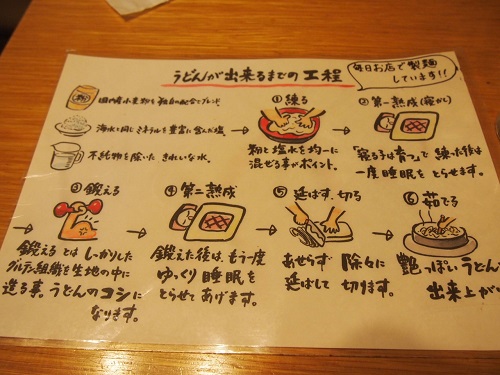 うどんが出来るまでの工程
毎日お店で製麺
しています!!
国内産小麦粉を独自の配合でブレンド。
海水と同じミネラルを豊富に含んだ塩。
不純物を除いたきれいな水。
①練る
粉と塩水を均一に
混ぜる事がポイント。
②第一熟成(寝かし)
「寝る子は育つ」で練った後は
一度睡眠をとらせます。
③鍛える
鍛えるとはしっかりした
グルテン組織を生地の中に
造る事。うどんのコシに
なります。
④第二熟成
鍛えた後は、もう一度
ゆっくり睡眠を
とらせてあげます。
⑤延ばす、切る
あせらず 除々に
延ばして 切ります。
⑥茹でる
艶っぽいうどん
出来上が